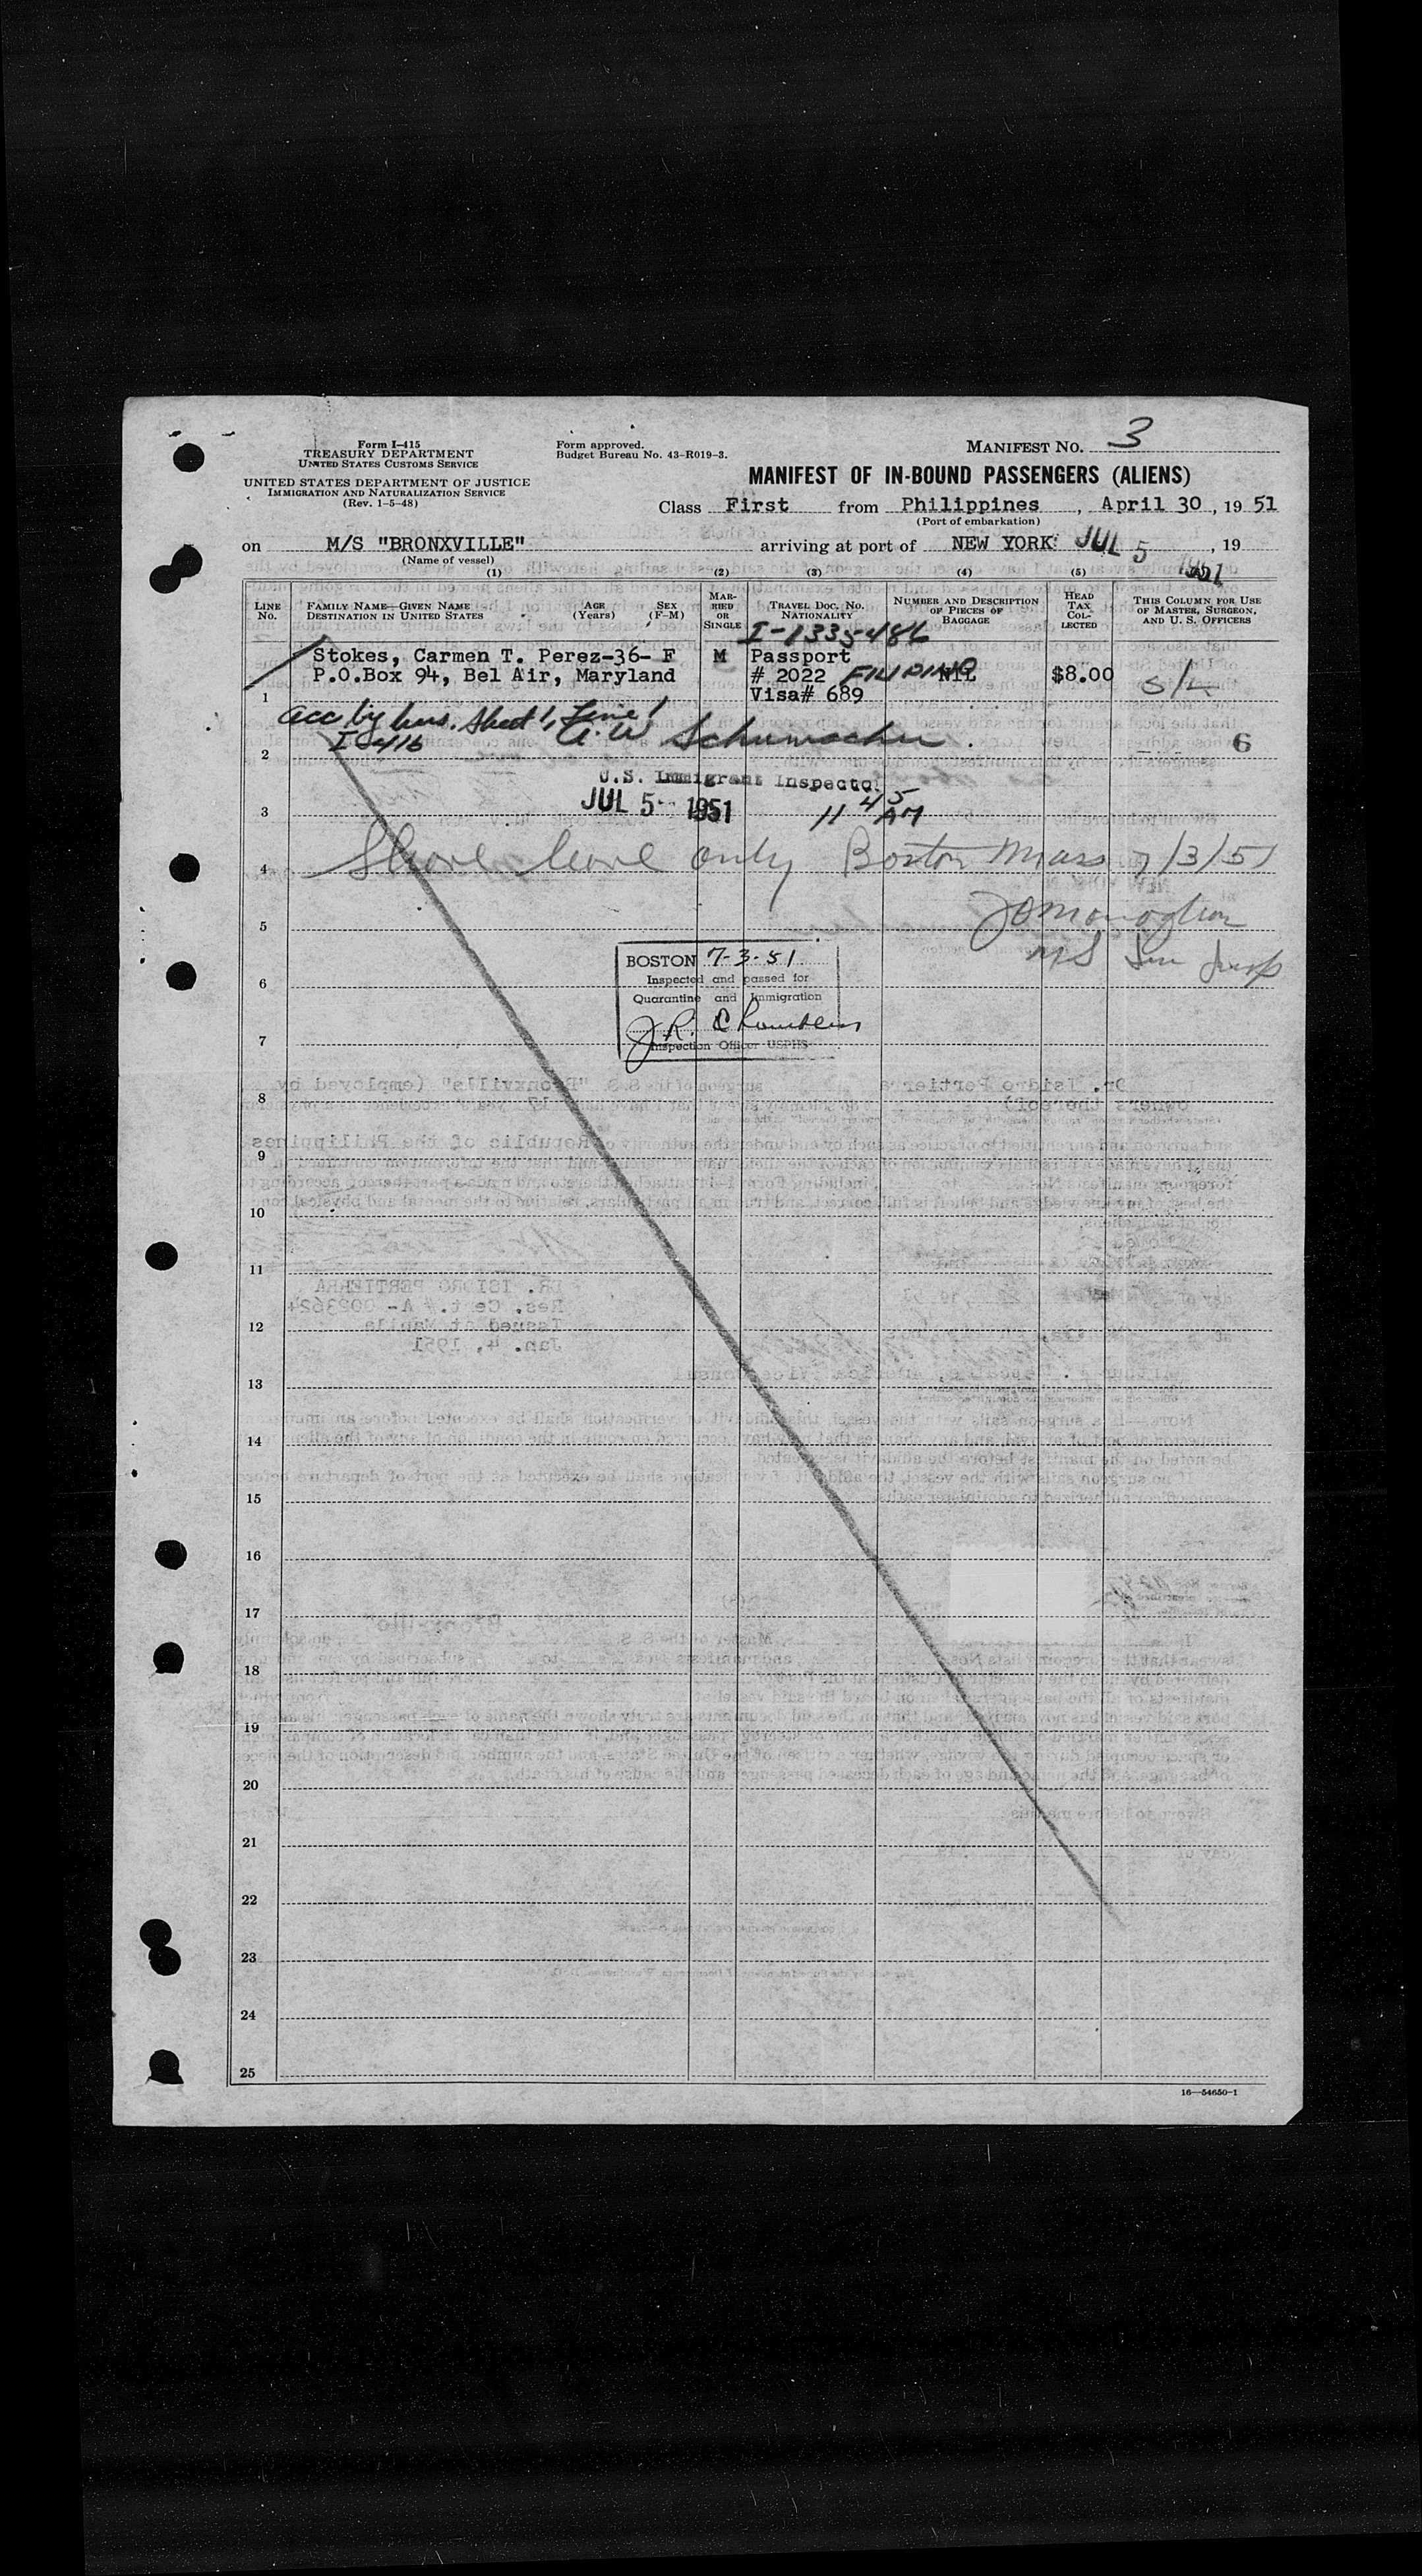 Form I-415
TREASURY DEPARTMENT
UNITED STATES CUSTOMS SERVICE
UNITED STATES DEPARTMENT OF JUSTICE
IMMIGRATION AND NATURALIZATION SERVICE
(Rev. 1-5-48)
Form approved.
Budget Bureau No. 43-R019-3.
MANIFEST NO. 3
MANIFEST OF IN-BOUND PASSENGERS (ALIENS)
Class First from Philippines, April 30, 19 51
(Port of embarkation)
on M/S "BRONXVILLE" arriving at port of NEW YORK JUL 5 1951, 19
(Name of vessel)
(1) (2) (3) (4) (5)
LINE NO.
FAMILY NAME—GIVEN NAME
DESTINATION IN UNITED STATES
AGE (Years)
SEX (F-M)
MARRIED OR SINGLE
TRAVEL DOC. NO. NATIONALITY
NUMBER AND DESCRIPTION OF PIECES OF BAGGAGE
HEAD TAX COLLECTED
THIS COLUMN FOR USE OF MASTER, SURGEON, AND U. S. OFFICERS
I-1335486
Stokes, Carmen T. Perez-36- F M Passport
P.O.Box 94, Bel Air, Maryland # 2022 FILIPINO NIL $8.00 S/L
1 Visa# 689
acc by hus. Sheet 1, Line 1
I-416 A.W. Schumacher
2 6
U.S. Immigrant Inspector
JUL 5 1951 11 45 AM
3
Shore leave only Boston Mass 7/3/51
4
JOMonaghan
5
BOSTON 7-3-51
Inspected and passed for
6
Quarantine and Immigration
J.R. Chambers
7
Inspection Officer USPHS
8
9
10
11
12
13
14
15
16
17
18
19
20
21
22
23
24
25
16—54650-1